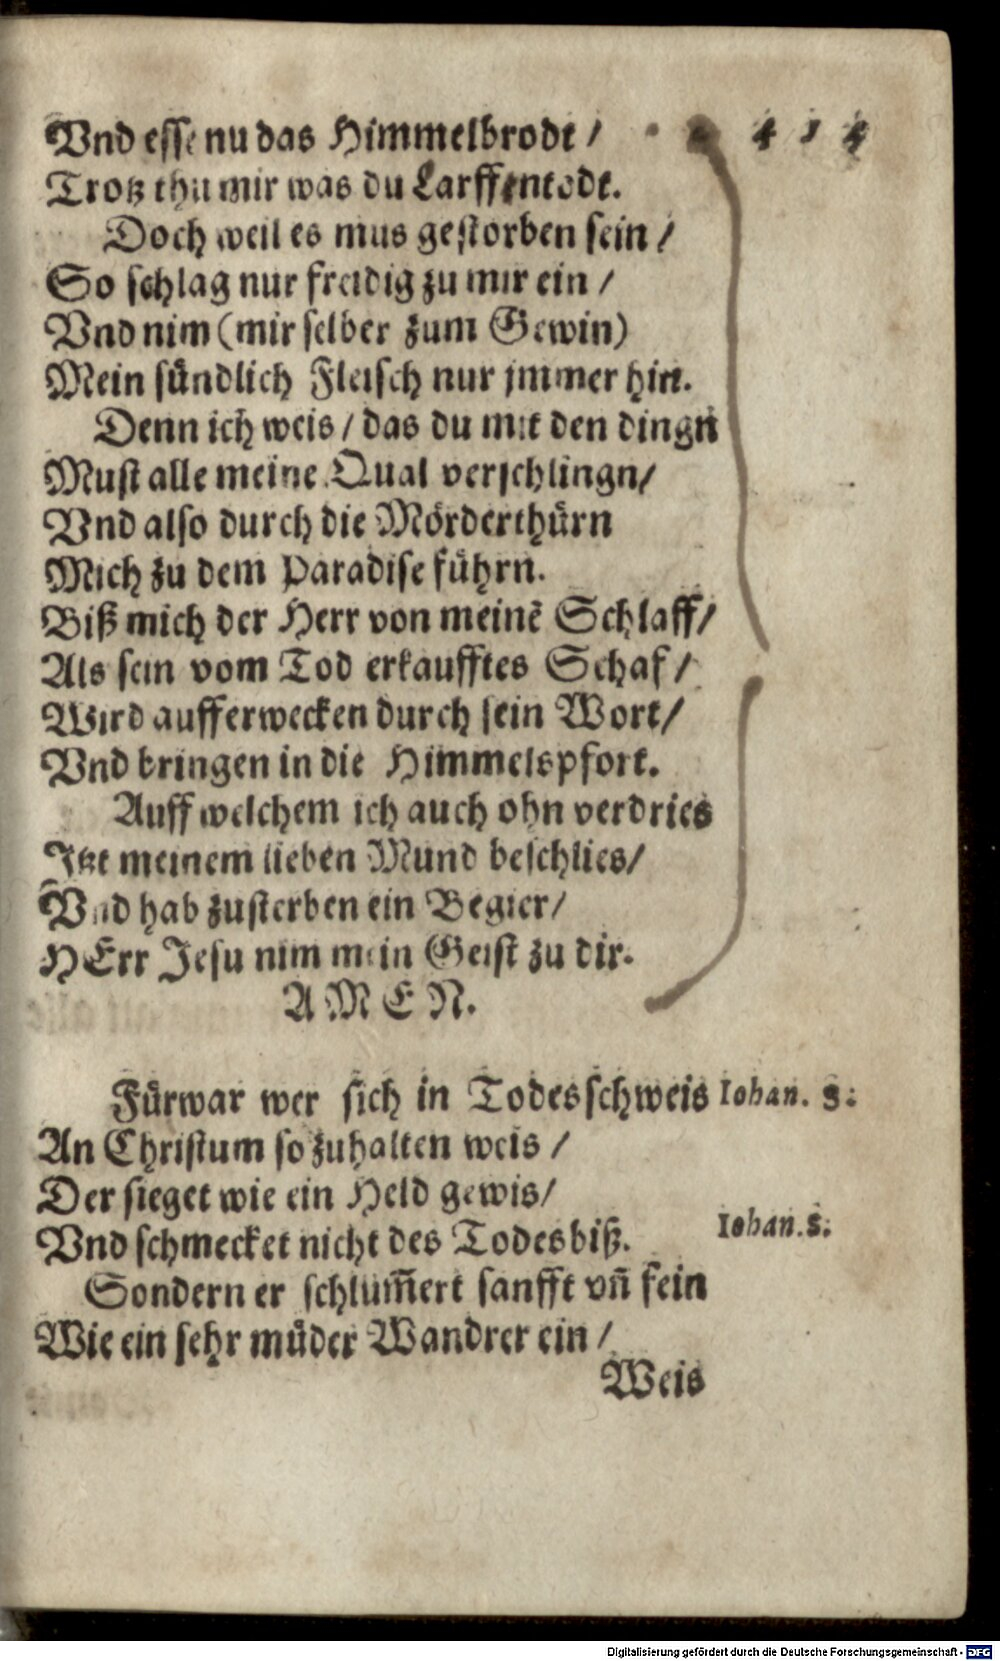 Vnd esse nu das Himmelbrodt / 4 1 4
Trotz thu mir was du Larffentodt.
Doch weil es mus gestorben sein /
So schlag nur freidig zu mir ein /
Vnd nim (mir selber zum Gewin)
Mein sündlich Fleisch nur jmmer hin.
Denn ich weis / das du mit den dingn
Must alle meine Qual verschlingn /
Vnd also durch die Mörderthürn
Mich zu dem Paradise führn.
Biß mich der Herr von meinē Schlaff /
Als sein vom Tod erkaufftes Schaf /
Wird aufferwecken durch sein Wort /
Vnd bringen in die Himmelspfort.
Auff welchem ich auch ohn verdries
Jtzt meinem lieben Mund beschlies /
Vnd hab zusterben ein Begier /
HErr Jesu nim mein Geist zu dir.
AMEN.
Fürwar wer sich in Todesschweis Iohan. 8:
An Christum so zuhalten weis /
Der sieget wie ein Held gewis /
Vnd schmecket nicht des Todesbiß. Iohan. 5:
Sondern er schlum̄ert sanfft vn̄ fein
Wie ein sehr müder Wandrer ein /
Weis
Digitalisierung gefördert durch die Deutsche Forschungsgemeinschaft - DFG